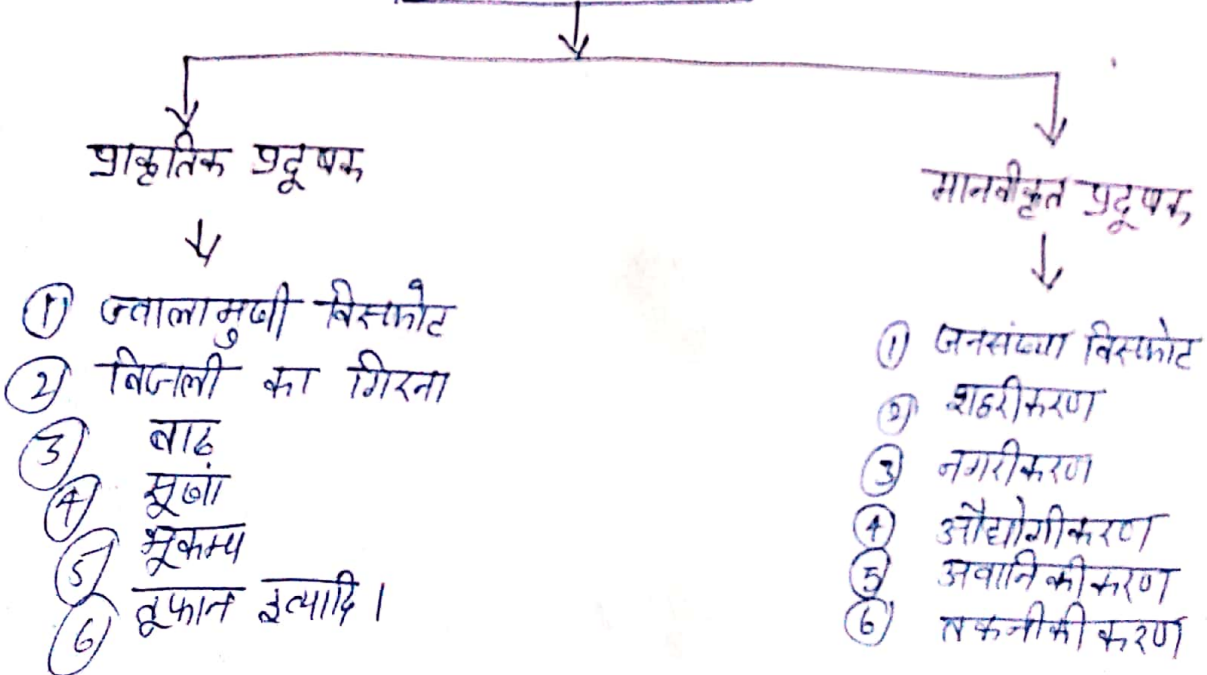 प्राकृतिक प्रदूषक
① ज्वालामुखी विस्फोट
② बिजली का गिरना
③ बाढ
④ सूखां
⑤ भूकम्प
⑥ तूफान इत्यादि।
मानवीकृत प्रदूषक
① जनसंख्या विस्फोट
② शहरीकरण
③ नगरीकरण
④ औद्योगीकरण
⑤ अवानिकीकरण
⑥ तकनीकीकरण